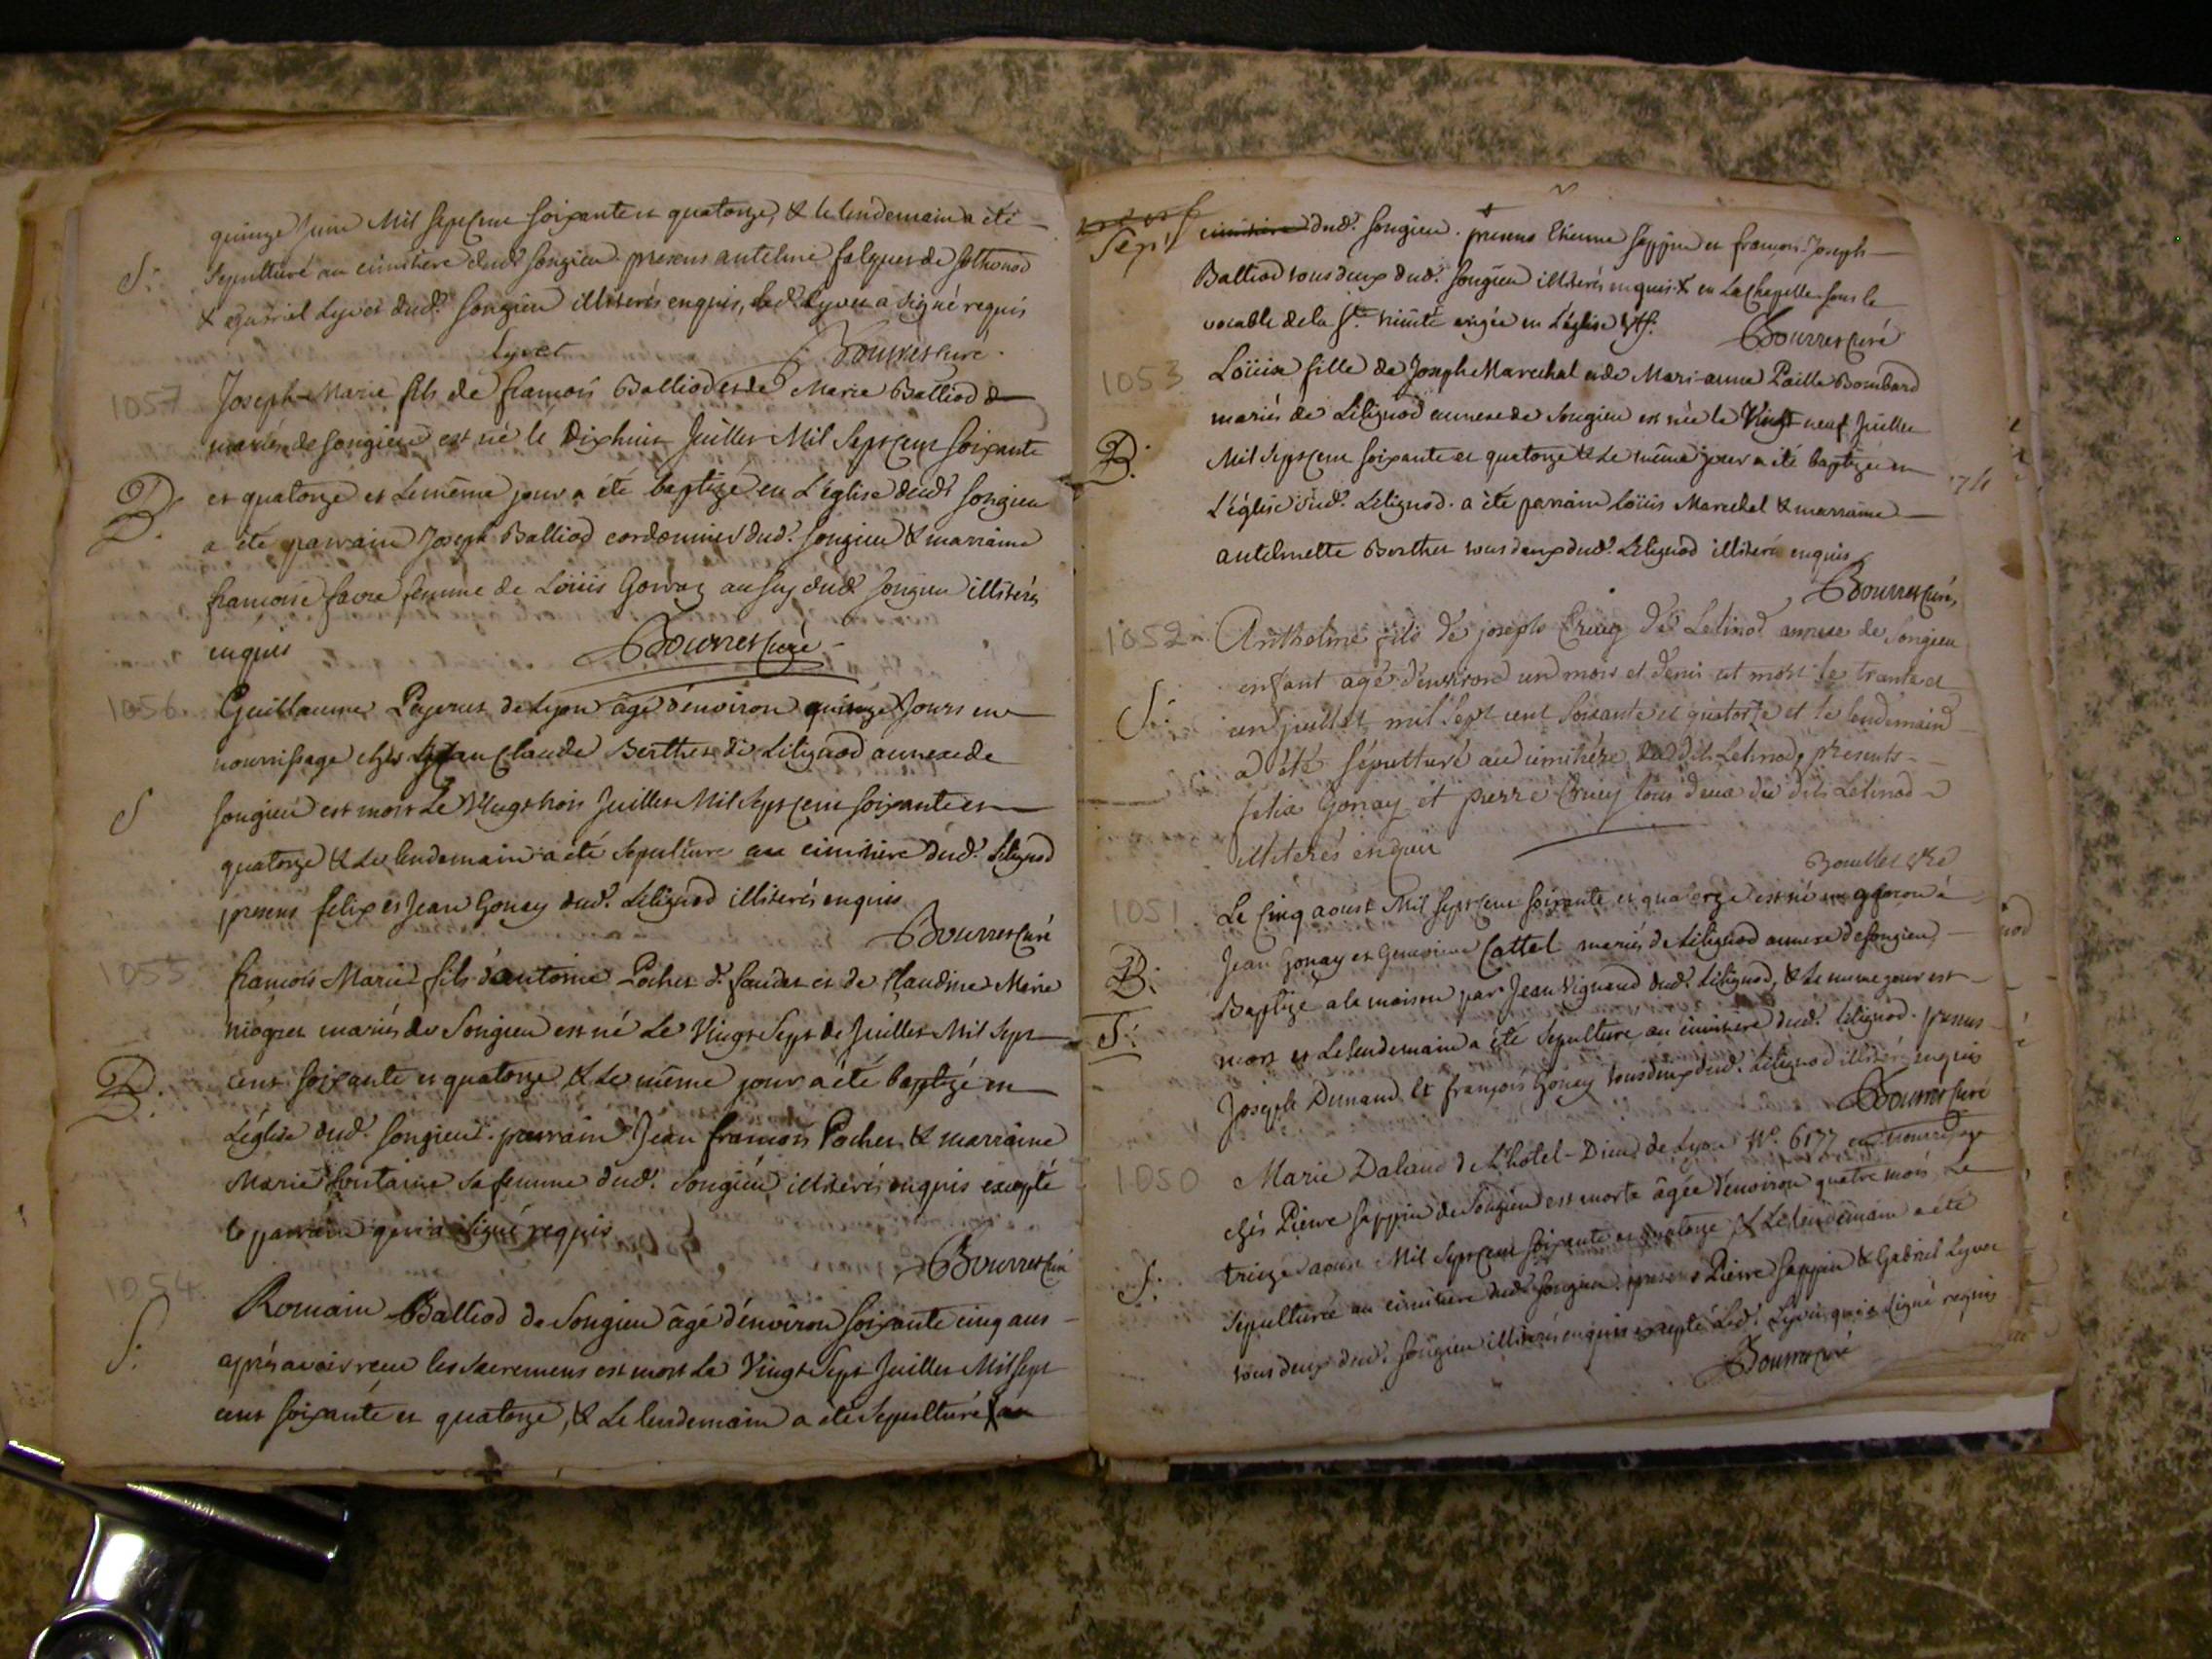 quinze Juin Mil Sept Cent soixante et quatorze, & le lendemain a été
S. Sepulturé au cimitiere dud. Songieu presens antelme falquet de Sothonod
& Gabriel Lyvet dud. Songieu illiterés enquis, led. Lyvet a signé requis
Lyvet Bourret Curé
1057 Joseph-Marie fils de françois Balliod et de Marie Balliod
mariés de Songieu est né le Dixhuit Juillet Mil Sept Cent soixante
B. et quatorze et le même jour a été baptizé en L'église dud. Songieu
a été parrain Joseph Balliod cordonnier dud. Songieu & marraine
francoise favre femme de Loüis Gonraz aussy dud. Songieu illiterés
enquis Bourret Curé
1056. Guillaume Payerut de Lyon âgé d'environ quinze Jours en
nourrissage chés Jean Claude Berthet de Lilignod annexe de
S Songieu est mort Le Vingt trois Juillet Mil Sept Cent soixante et
quatorze & Le lendemain a été sepulturé au cimitiere dud. Lilignod
presens felix et Jean Gonay dud. Lilignod illiterés enquis
Bourret Curé
1055 francois Marie fils d'antoine Pochet et de Claudine Marie
mariés de Songieu est né Le Vingt Sept de Juillet Mil Sept
B. cent soixante et quatorze & Le même jour a été baptizé en
L'église dud. Songieu. parrain Jean francois Pochet & marraine
Marie fontaine sa femme dud. Songieu illiterés enquis excepté
le parrain qui a signé requis
Bourret Curé
1054. Romain Balliod de Songieu âgé d'environ soixante cinq ans
S. après avoir reçu les Sacremens est mort Le Vingt Sept Juillet Mil Sept
cent soixante et quatorze, & Le lendemain a été Sepulturé au
Sept cimitiere dud. Songieu. presens Etienne Sappin et françois Joseph
Balliod tous deux dud. Songieu illiterés enquis & en La chapelle sous le
vocable de la Ste. Trinité erigée en L'église
Bourret Curé
1053 Loüise fille de Joseph Marechal et de Mari-anne Paille Bombard
mariés de Lilignod annexe de Songieu est née le Vingt neuf Juillet
B. Mil Sept Cent soixante et quatorze & Le même jour a été baptizée en
L'église dud. Lilignod. a été parrain Loüis Marechal & marraine
antelmette Berthet tous deux dud. Lilignod illiterés enquis
Bourret Curé
1052 Anthelme fils de joseph Cruiy de Lelinod annexe de Songieu
enfant agé d'environ un mois et demi est mort le trente et
S. un juillet mil Sept cent soixante et quatorze et le lendemain
a été sépulturé au cimitiére dudit Lelinod, présents
felix Gonay et pierre Cruiy tous deux du dit Lélinod
illiterés enquis
1051 Le Cinq aoust Mil Sept Cent soixante et quatorze est né un garçon à
B. Jean Gonay et Genevieve Cattel mariés de Lilignod annexe de Songieu,
Baptizé a la maison par Jean Vignaud dud. Lilignod, & Le même jour est
S. mort et Le lendemain a été Sepulturé au cimitiere dud. Lilignod. presens
Joseph Dunand & françois Gonay tous deux dud. Lilignod illiterés enquis
Bourret Curé
1050 Marie Daland de L'hôtel-Dieu de Lyon No. 6177 en nourrissage
chés Pierre Sappin de Songieu est morte âgée d'environ quatre mois Le
S. treize aoust Mil Sept Cent soixante et quatorze & Le lendemain a été
Sepulturée au cimitiere dud. Songieu. presens Pierre Sappin & Gabriel Lyvet
tous deux dud. Songieu illiterés enquis excepté Led. Lyvet qui a signé requis
Bourret Curé